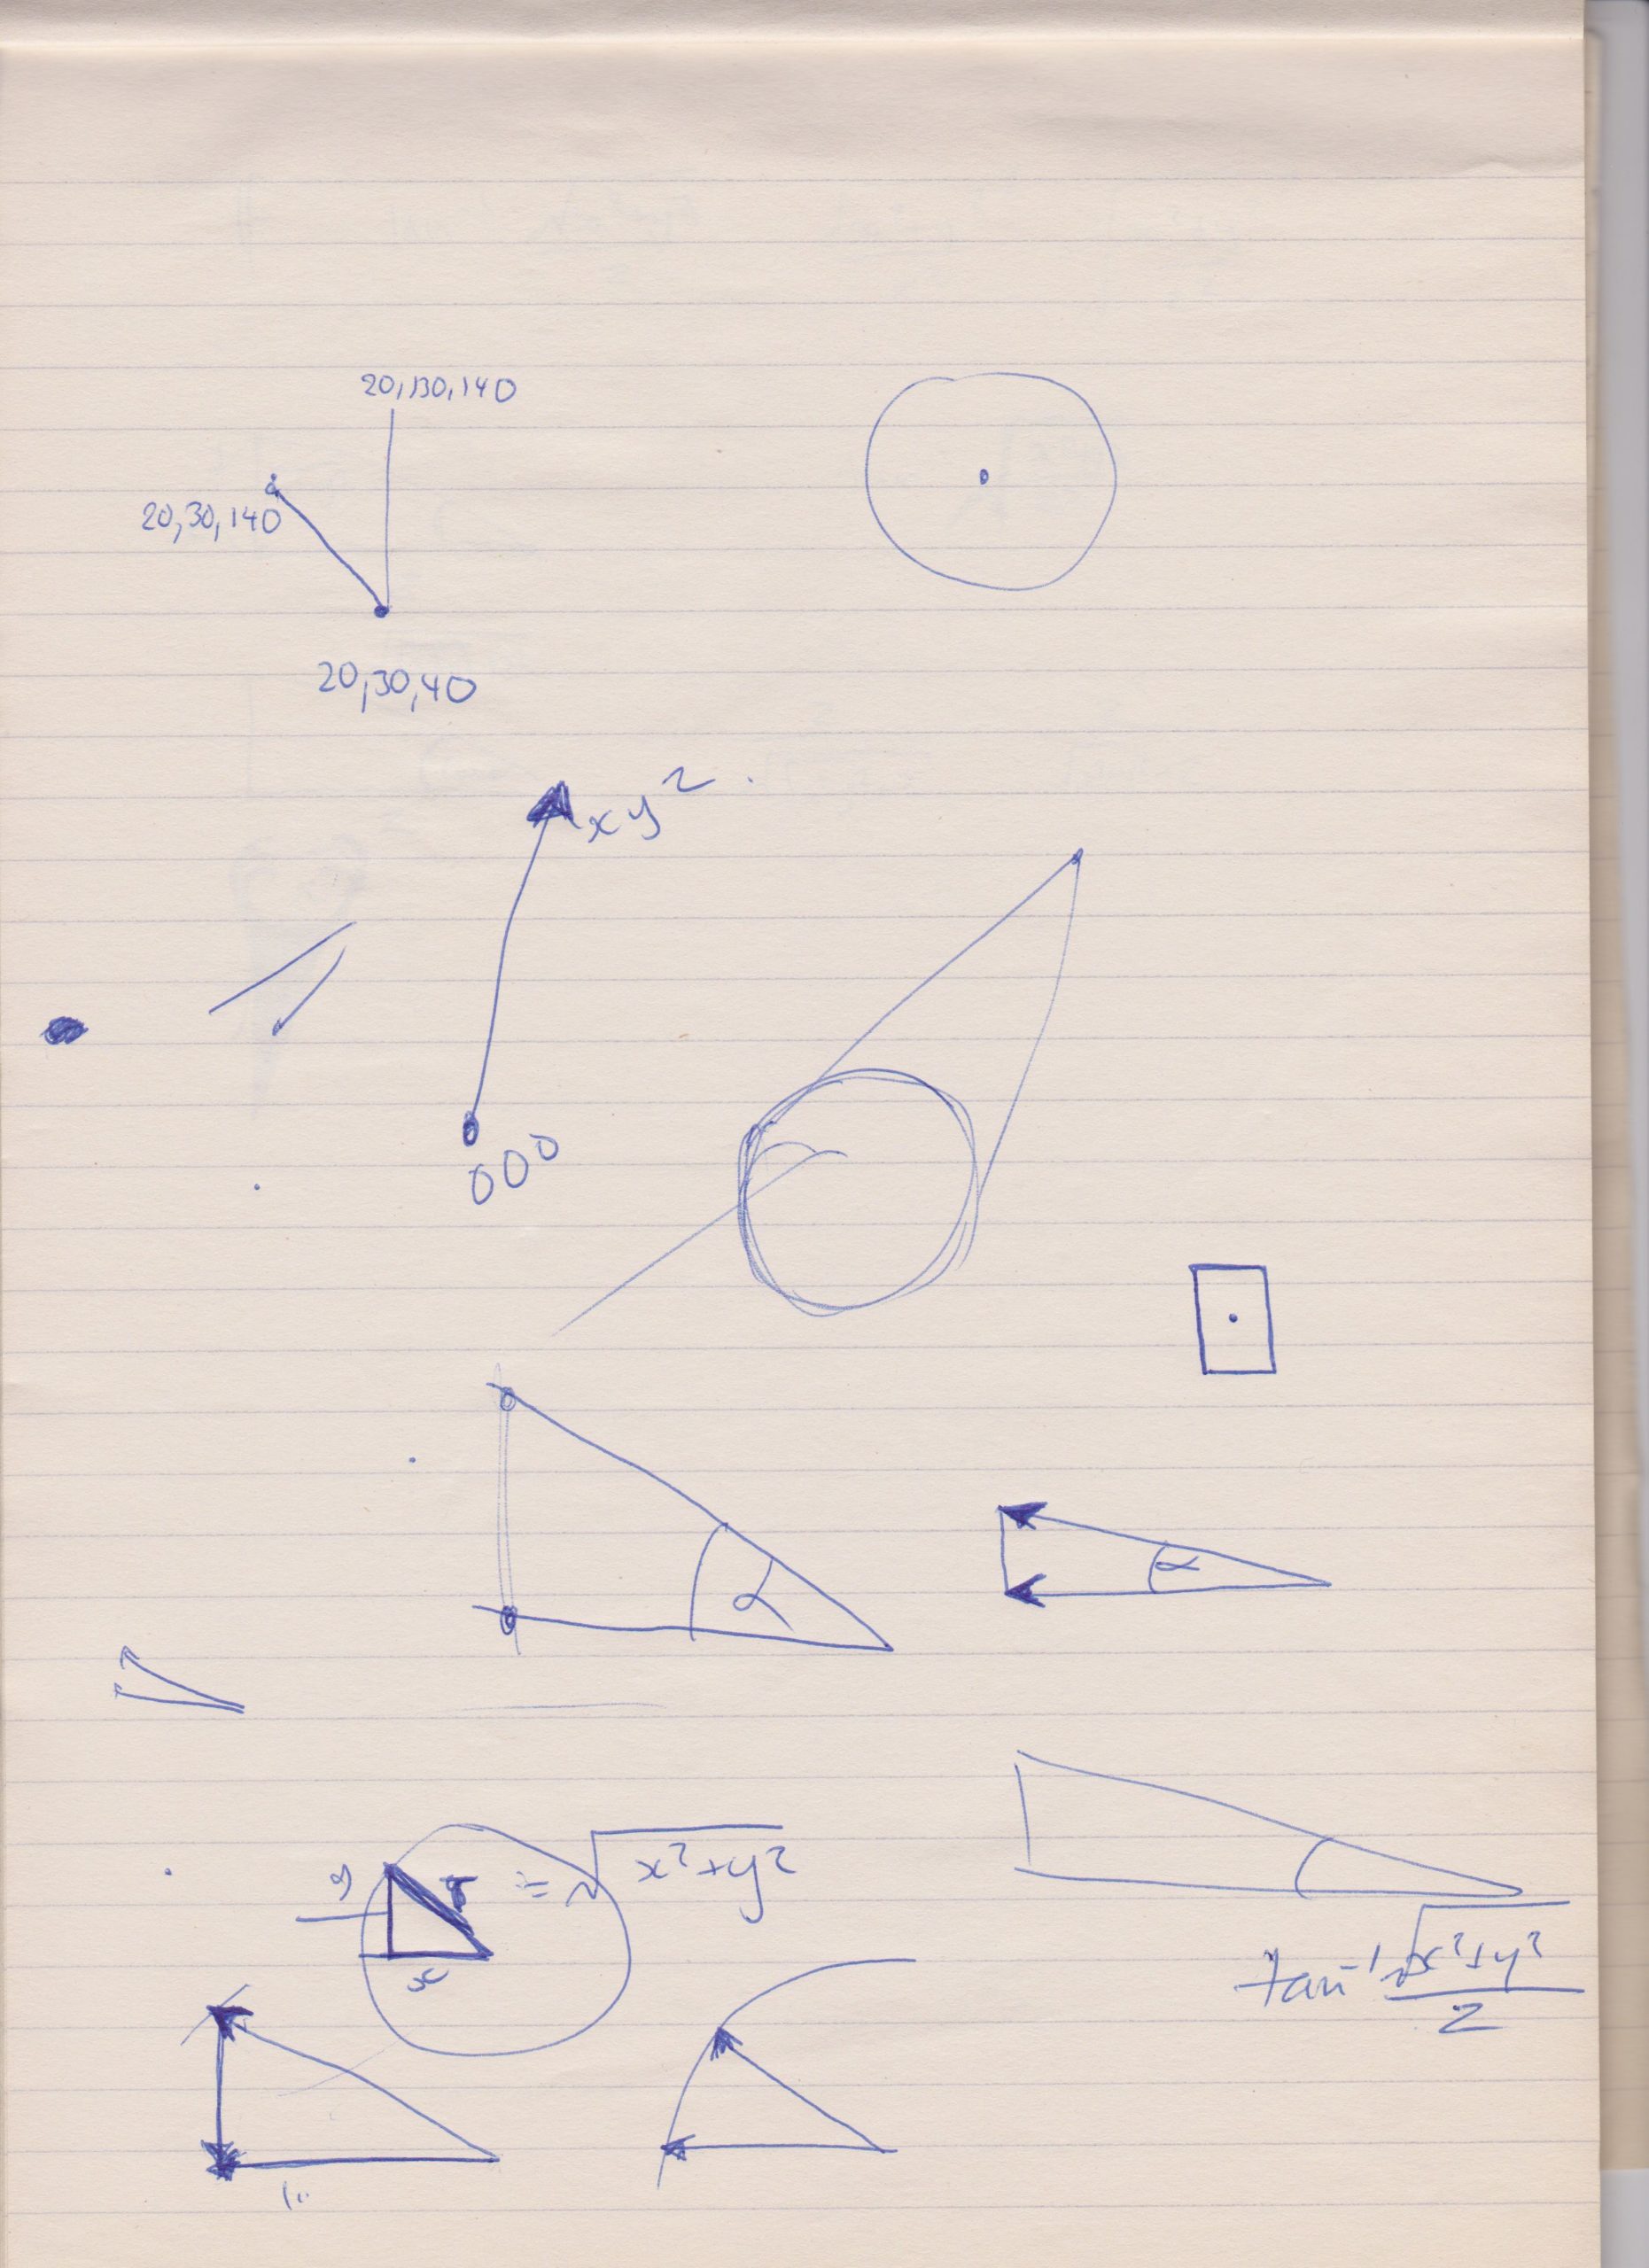 20,130,140
20,30,140
20,30,40
xyz
000
α
α
y
r = √x²+y²
x
tan⁻¹ √x²+y²
z